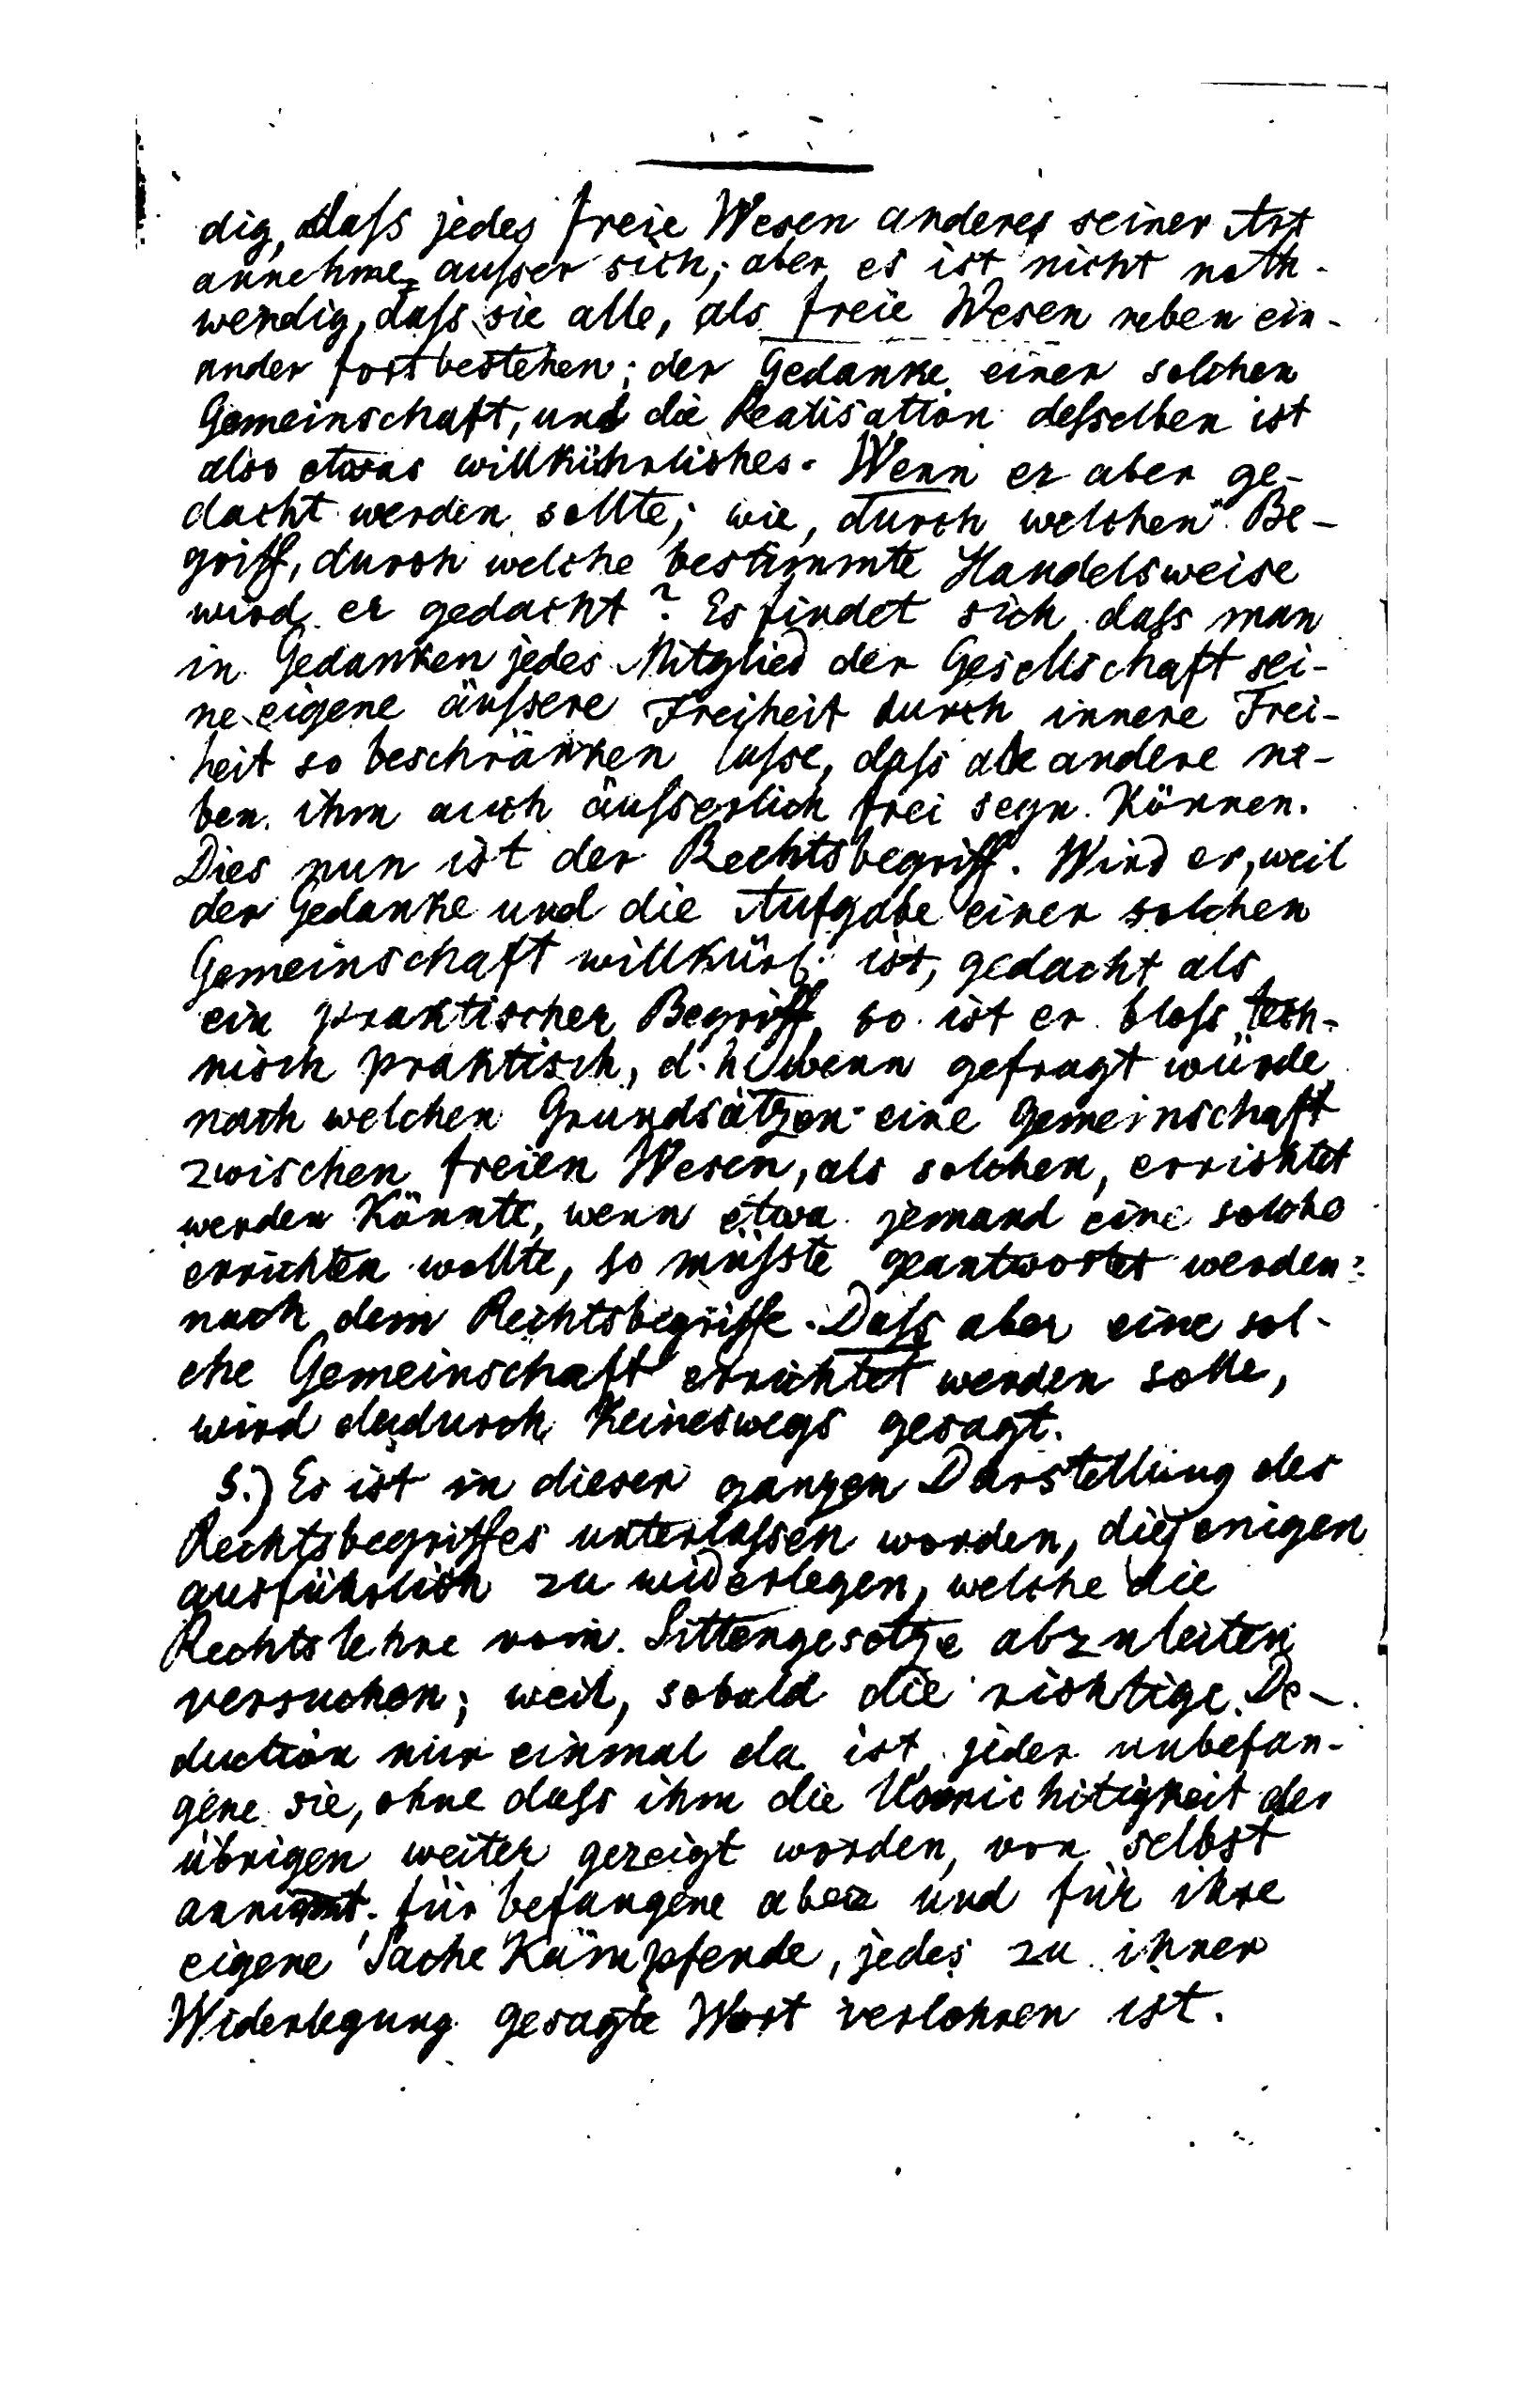 dig, daſs jedes freie Wesen anderes seiner Art
annehme, auſser sich; aber es ist nicht noth-
wendig, daſs sie alle, als freie Wesen neben ein-
ander fortbestehen; der Gedanke einer solchen
Gemeinschaft, und die Realisation deſselben ist
also etwas willkührliches. Wenn er aber ge-
dacht werden sollte; wie, durch welchen Be-
griff, durch welche bestimmte Handelsweise
wird er gedacht? Es findet sich daſs man
in Gedanken jedes Mitglied der Gesellschaft sei-
ne eigene äuſsere Freiheit durch innere Frei-
heit so beschränken laſse, daſs alle andere ne-
ben ihm auch äuſserlich frei seyn können.
Dies nun ist der Rechtsbegriff. Wird er, weil
der Gedanke und die Aufgabe einer solchen
Gemeinschaft willkürl. ist, gedacht als
ein praktischer Begriff, so ist er bloſs tech-
nisch praktisch, d. h. wenn gefragt würde
nach welchen Grundsätzen eine Gemeinschaft
zwischen freien Wesen, als solchen, errichtet
werden könnte, wenn etwa jemand eine solche
errichten wollte, so müſste geantwortet werden:
nach dem Rechtsbegriffe. Daſs aber eine sol-
che Gemeinschaft errichtet werden solle,
wird dadurch keineswegs gesagt.
5.) Es ist in dieser ganzen Darstellung des
Rechtsbegriffes unterlaſsen worden, diejenigen
ausführlich zu widerlegen, welche die
Rechtslehre vom Sittengesetze abzuleiten
versuchen; weil, sobald die richtige De-
duction nur einmal da ist, jeder unbefan-
gene sie, ohne daſs ihm die Unrichitigkeit der
übrigen weiter gezeigt worden, von selbst
annimt. für befangene aber und für ihre
eigene Sache Kämpfende, jedes zu ihrer
Widerlegung gesagte Wort verlohren ist.